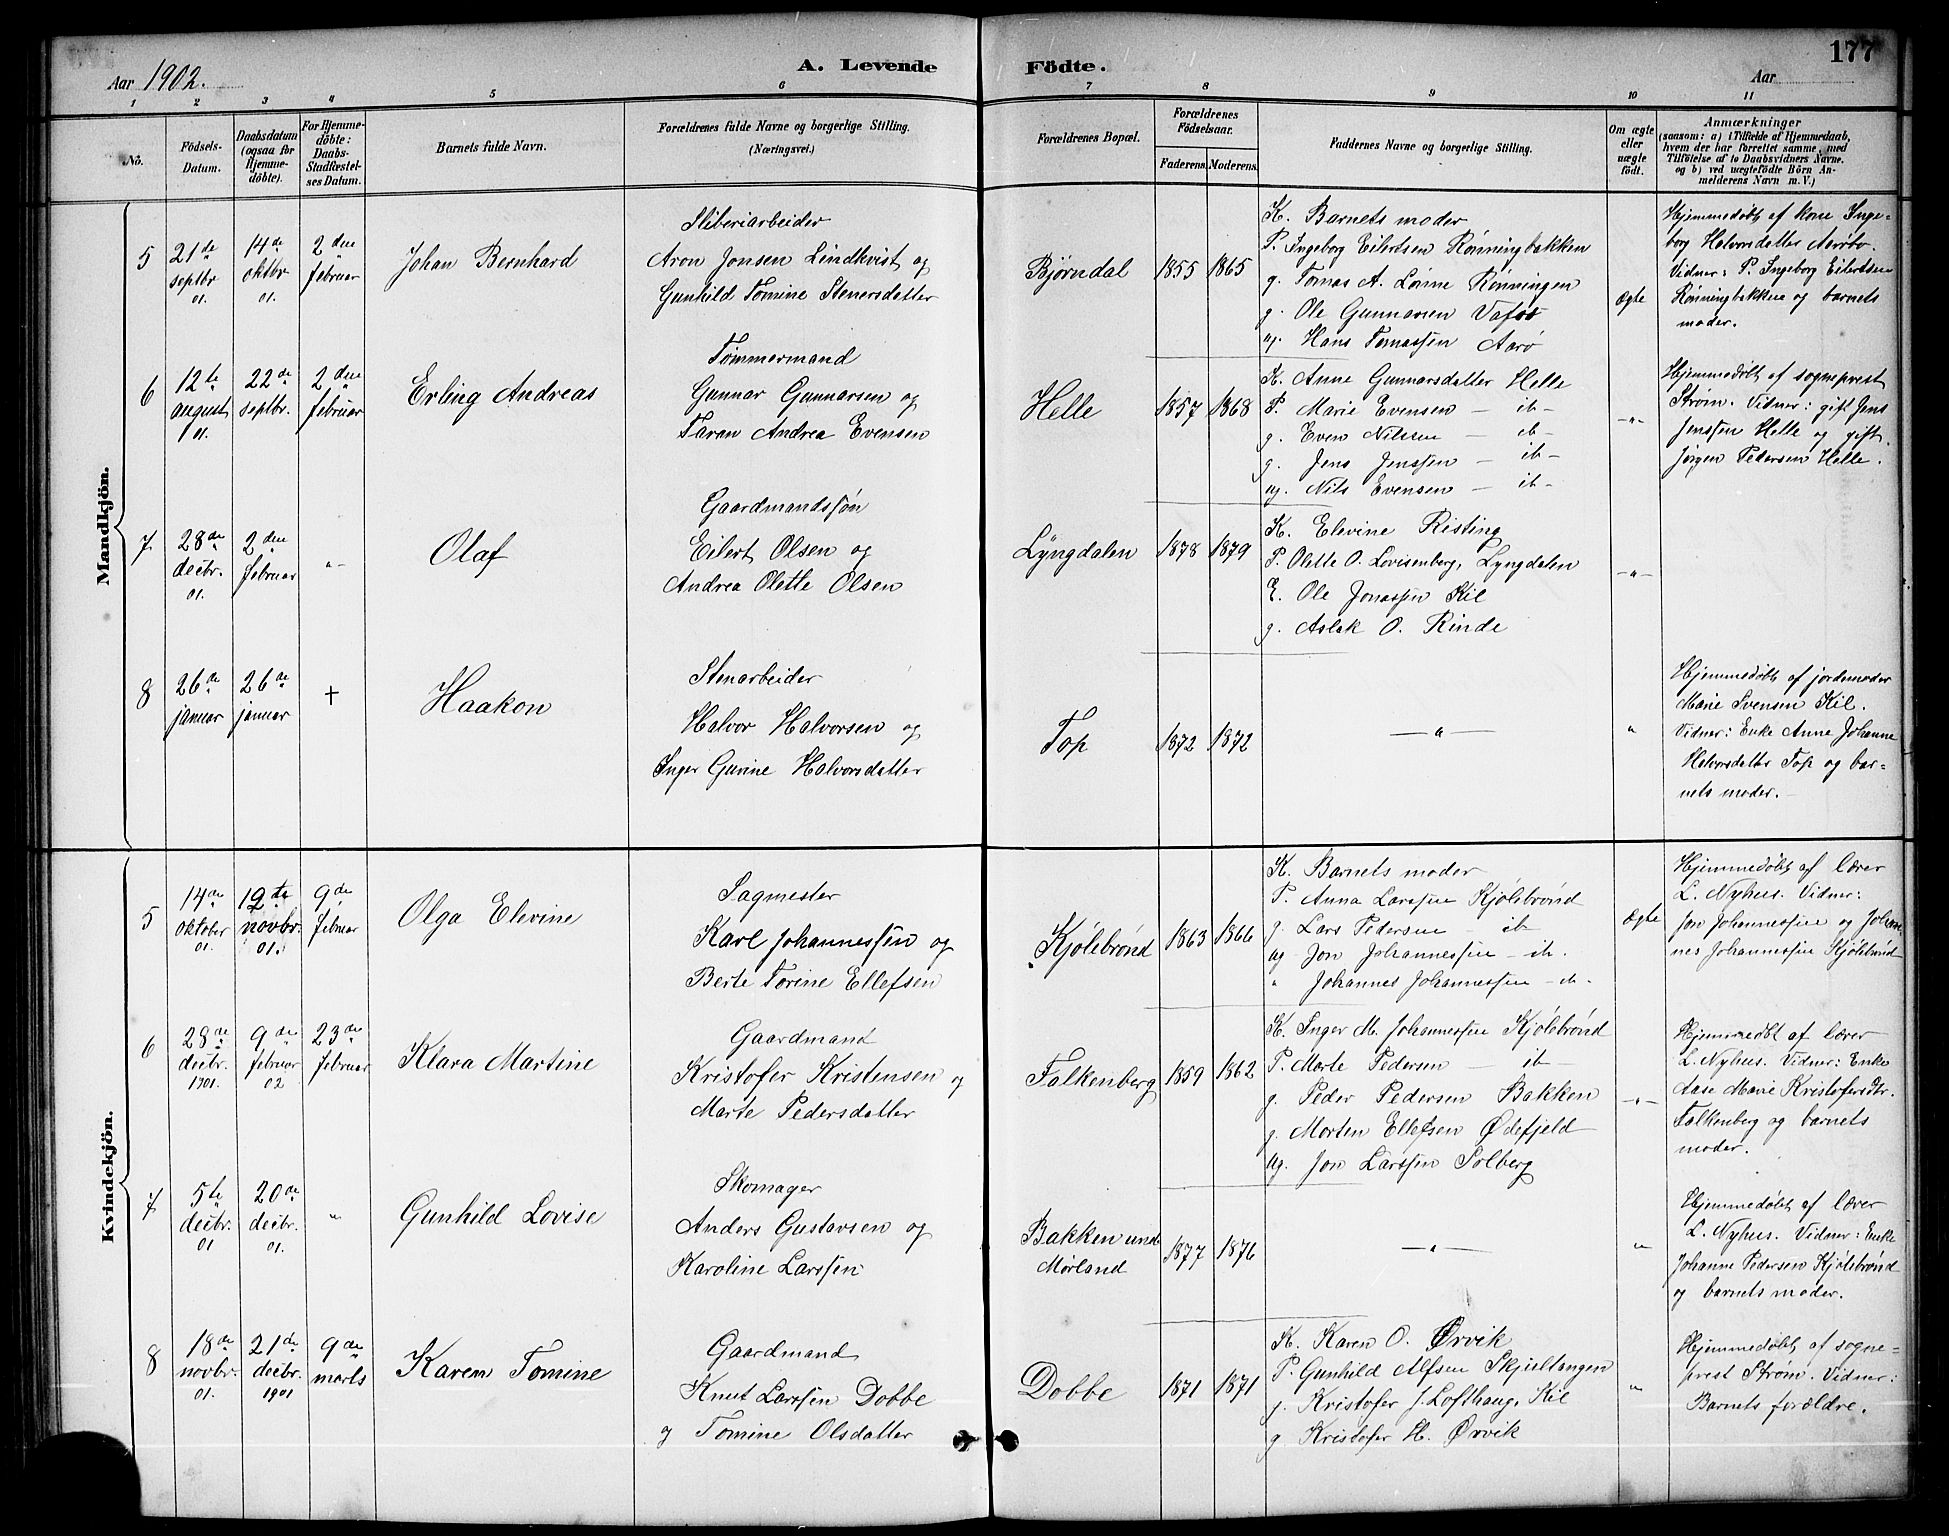 177
Aar 1902.
A. Levende Födte.
Aar
1 2 3 4 5 6 7 8 9 10 11
No.
Födsels-Datum.
Daabsdatum (ogsaa for Hjemme-döbte).
For Hjemme-döbte: Daabs-Stadfæstel-ses Datum.
Barnets fulde Navn.
Forældrenes fulde Navne og borgerlige Stilling. (Næringsvei.)
Forældrenes Bopæl.
Forældrenes Födselsaar.
Faderens. Moderens.
Faddernes Navne og borgerlige Stilling.
Om ægte eller uægte födt.
Anmærkninger
(saasom: a) i Tilfælde af Hjemmedaab,
hvem der har forrettet samme, med
Tilföielse af to Daabsvidners Navne.
og b) ved uægtefödte Börn An-
melderens Navn m. V.)
Mandkjön.
5
21de septbr 01.
14de oktbr 01.
2den februar
Johan Bernhard
Sliberiarbeider
Aron Jonsen Lindkvist og
Gunhild Tomine Stenersdatter
Bjørndal
1855 1865
K. Barnets moder
P. Ingeborg Eilertsen Rønningbakken
g. Tomas A. Lønne Rønningen
g. Ole Gunnarsen Vafos
ug. Hans Tomassen Aarø
Ægte
Hjemmedøbt af kone Inge-
borg Halvorsdatter Aarøbo.
Vidner: P. Ingeborg Eilertsen
Rønningbakken og barnets
moder.
6
12te august 01.
22de septbr.
2den februar
Erling Andreas
Tømmermand
Gunnar Gunnarsen og
Taran Andrea Evensen
Helle
1857 1868
K. Anne Gunnarsdatter Helle
P. Marie Evensen — ib—
g. Even Nilssen — ib—
g. Jens Jenssen — ib—
ug. Nils Evensen — ib—
—"—
Hjemmedøbt af sogneprest
Strøm. Vidner: gift Jens
Jenssen Helle og gift
Jørgen Pedersen Helle.
7
28de decbr. 01.
2den februar
"—
Olaf
Gaardmandssøn
Eilert Olsen og
Andrea Olette Olsen
Lyngdalen
1878 1879
K. Elevine Risting
P. Olette O. Lovisenberg, Lyngdalen
E. Ole Jonassen Kil
g. Aslak O. Rinde
—"—
8
26de januar
26de januar
†
Haakon
Stenarbeider
Halvor Halvorsen og
Inger Gurine Halvorsdatter
Top
1872 1872
—"—
"
Hjemmedøbt af jordemoder
Marie Svensen Kil.
Vidner: Enke Anne Johanne
Halvorsdatter Top og bar-
nets moder.—
Kvindekjön.
5
14de oktober 01.
12te novbr. 01.
9de februar
Olga Elevine
Sagmester
Karl Johannessen og
Berte Torine Ellefsen
Kjølebrønd
1863 1866
K. Barnets moder
P. Anna Larssen Kjølebrønd
g. Lars Pedersen — ib
ug Jon Johannessen — ib.
" Johannes Johannessen — ib.
Ægte
Hjemmedøbt af lærer
L. Nyhus. Vidner:
Jon Johannessen og Johan-
nes Johannessen Kjølebrønd
6
28de decbr. 1901.
9de februar 02
23de februar
Klara Martine
Gaardmand
Kristofer Kristensen og
Marte Pedersdatter
Falkenberg
1859 1862
K. Inger M. Johannessen Kjølebrønd
P. Marte Pedersen — ib—
g. Peder Pedersen Bakken
g. Morten Ellefsen Ødefjeld
ug. Jon Larssen Solberg
—"—
Hjemmedøbt af lærer
L. Nyhus. Vidner: Enke
Aase Marie Kristofersdtr.
Falkenberg og barnets
moder.
7
5te decbr. 01
20de decbr. 01.
"
Gunhild Lovise
Skomager
Anders Gustavsen og
Karoline Larssen
Bakken und.
Mørland
1877 1876
—"—
"
Hjemmedøbt af lærer
L. Nyhus. Vidner: Enke
Johanne Pedersen Kjølebrønd
og barnets moder.
8
18de novbr. 01.
21de decbr. 1901
9de marts
Karen Tomine
Gaardmand
Knut Larssen Dobbe
og Tomine Olsdatter
Dobbe
1871 1871
K. Karen O. Ørvik
P. Gunhild Alfsen Skjeltangen
g. Kristofer J. Lofthaug, Kil
g Kristofer H. Ørvik
"
Hjemmedøbt af sogne-
prest Strøm. Vidner:
Barnets forældre.